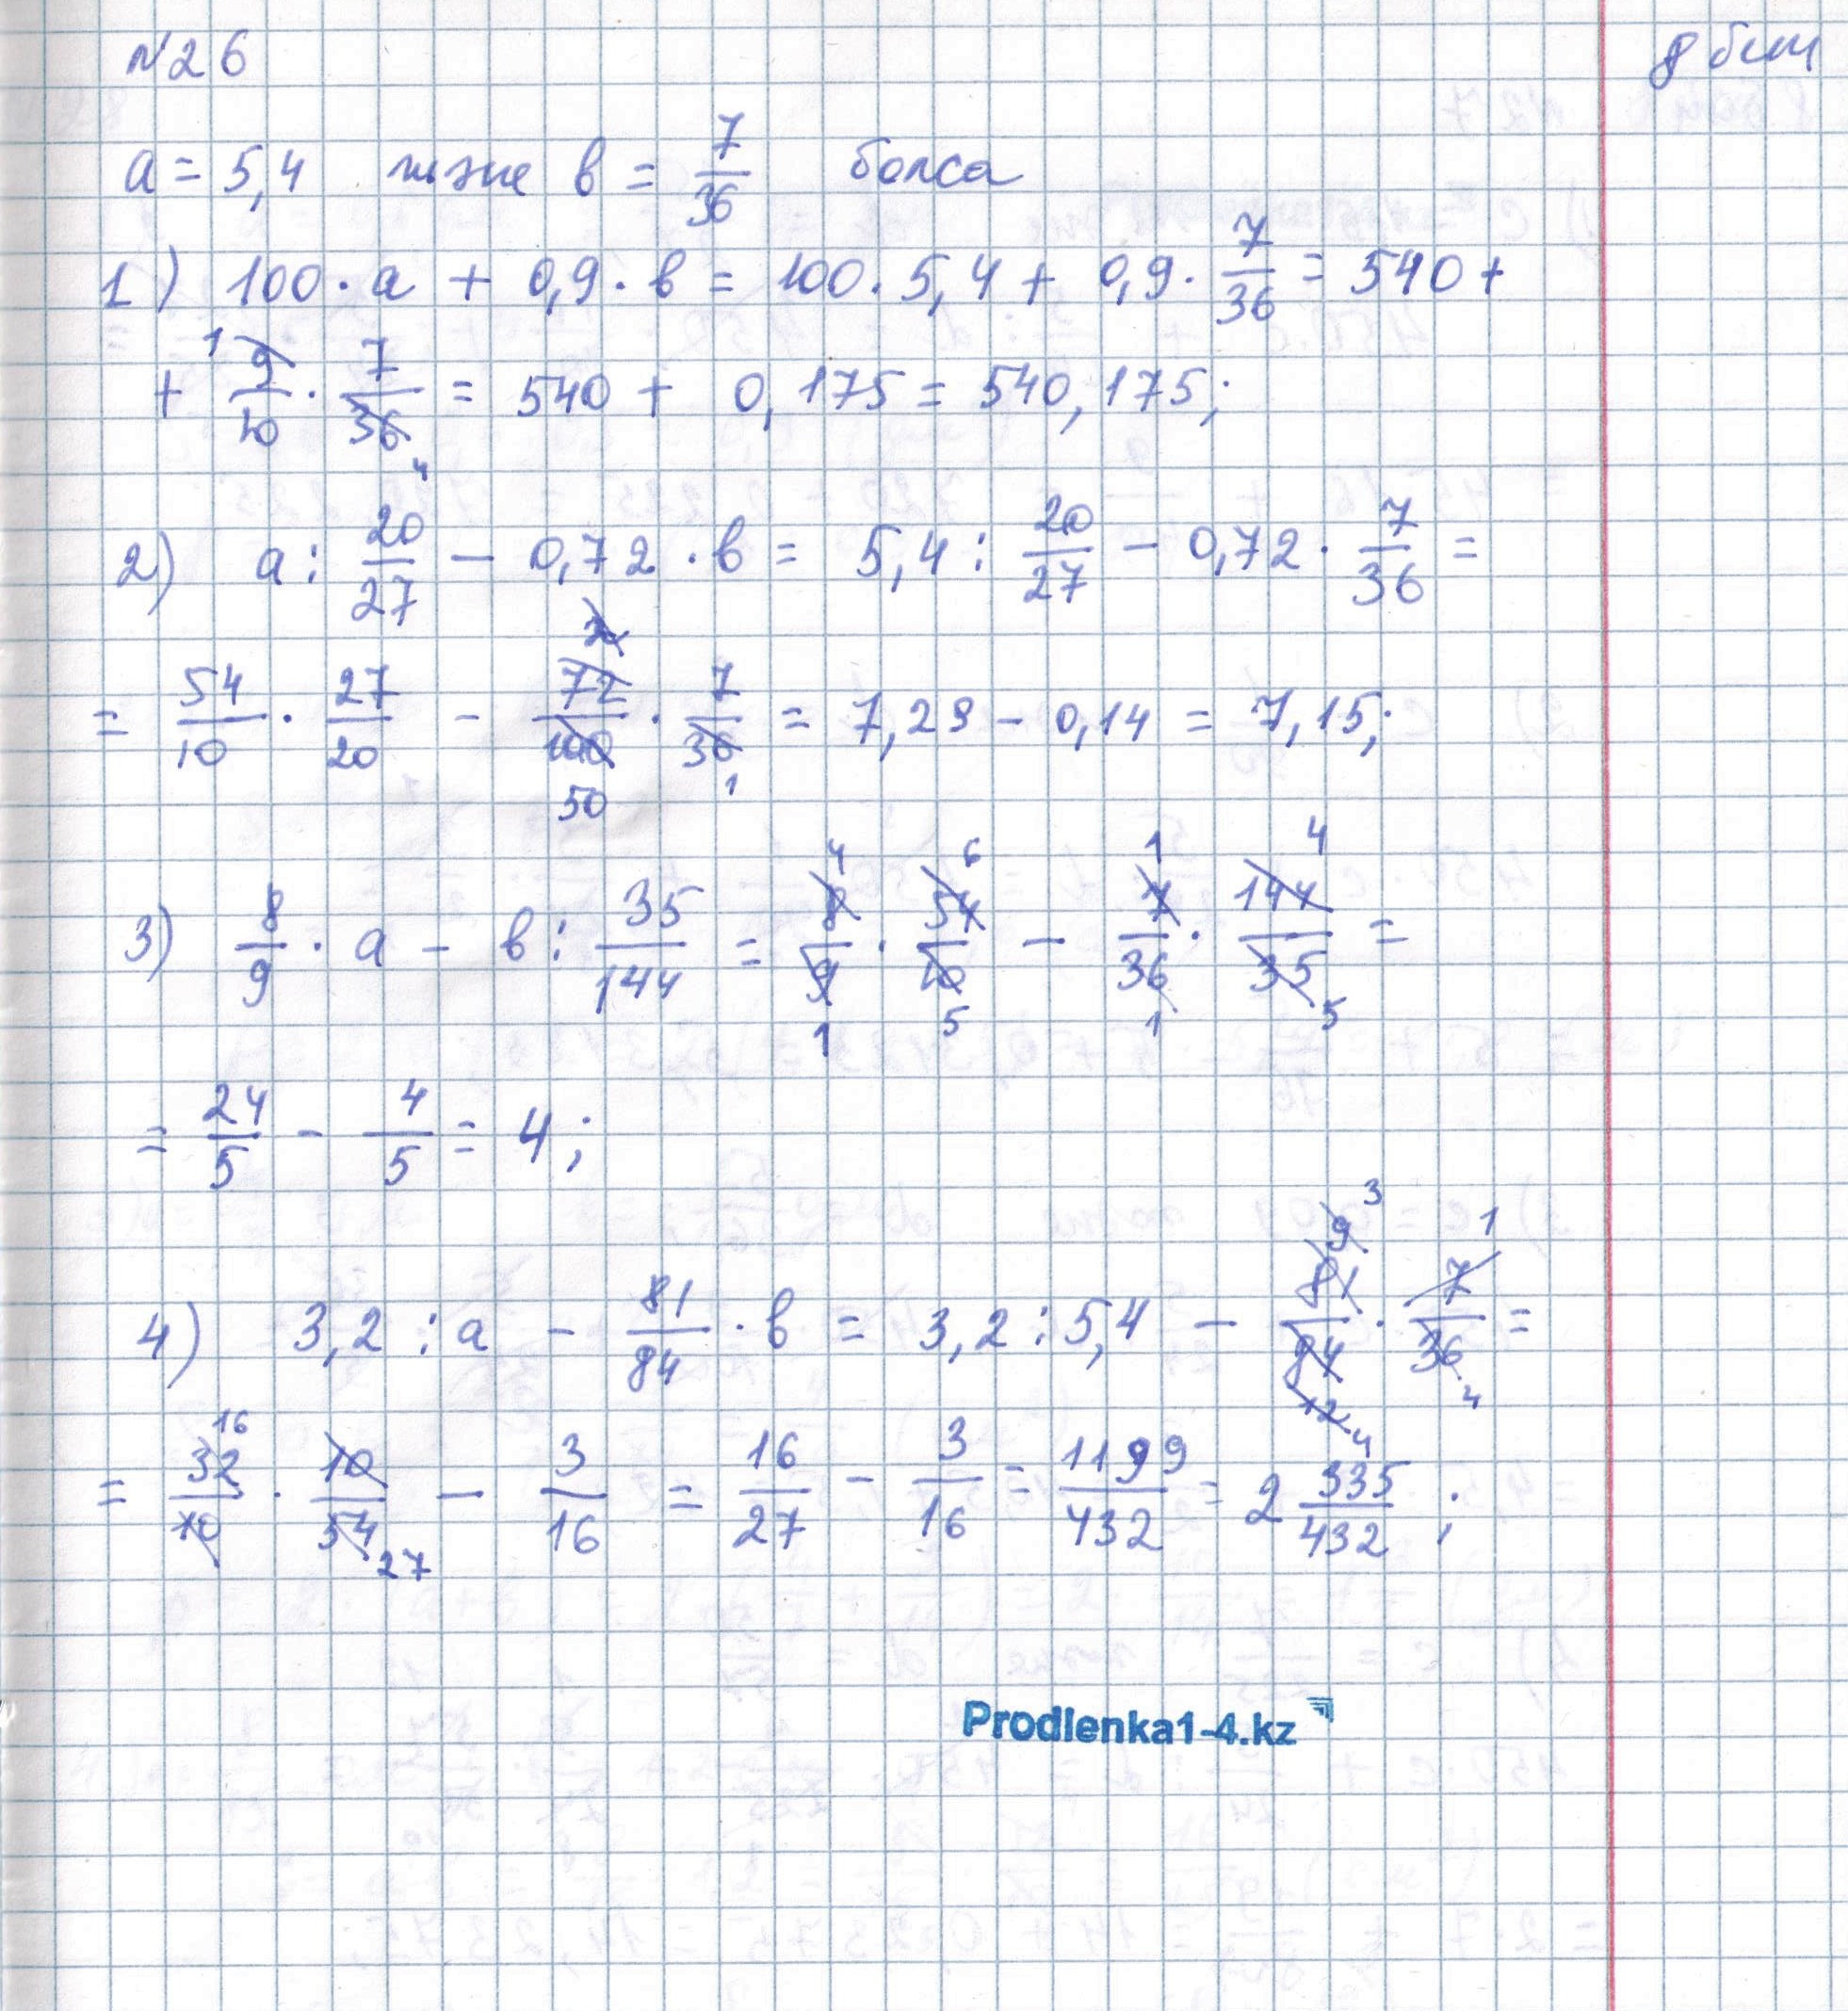 №26 8 бет
a = 5,4 және b = 7/36 болса
1) 100 · a + 0,9 · b = 100 · 5,4 + 0,9 · 7/36 = 540 +
+ 9/10 · 7/36 = 540 + 0,175 = 540,175;
2) a : 20/27 – 0,72 · b = 5,4 : 20/27 – 0,72 · 7/36 =
= 54/10 · 27/20 – 72/100 · 7/36 = 7,29 – 0,14 = 7,15;
3) 8/9 · a – b : 35/144 = 8/9 · 54/10 – 7/36 · 144/35 =
= 24/5 – 4/5 = 4;
4) 3,2 : a – 81/84 · b = 3,2 : 5,4 – 81/84 · 7/36 =
= 32/10 · 10/54 – 3/16 = 16/27 – 3/16 = 1199/432 = 2 335/432;
Prodlenka1-4.kz